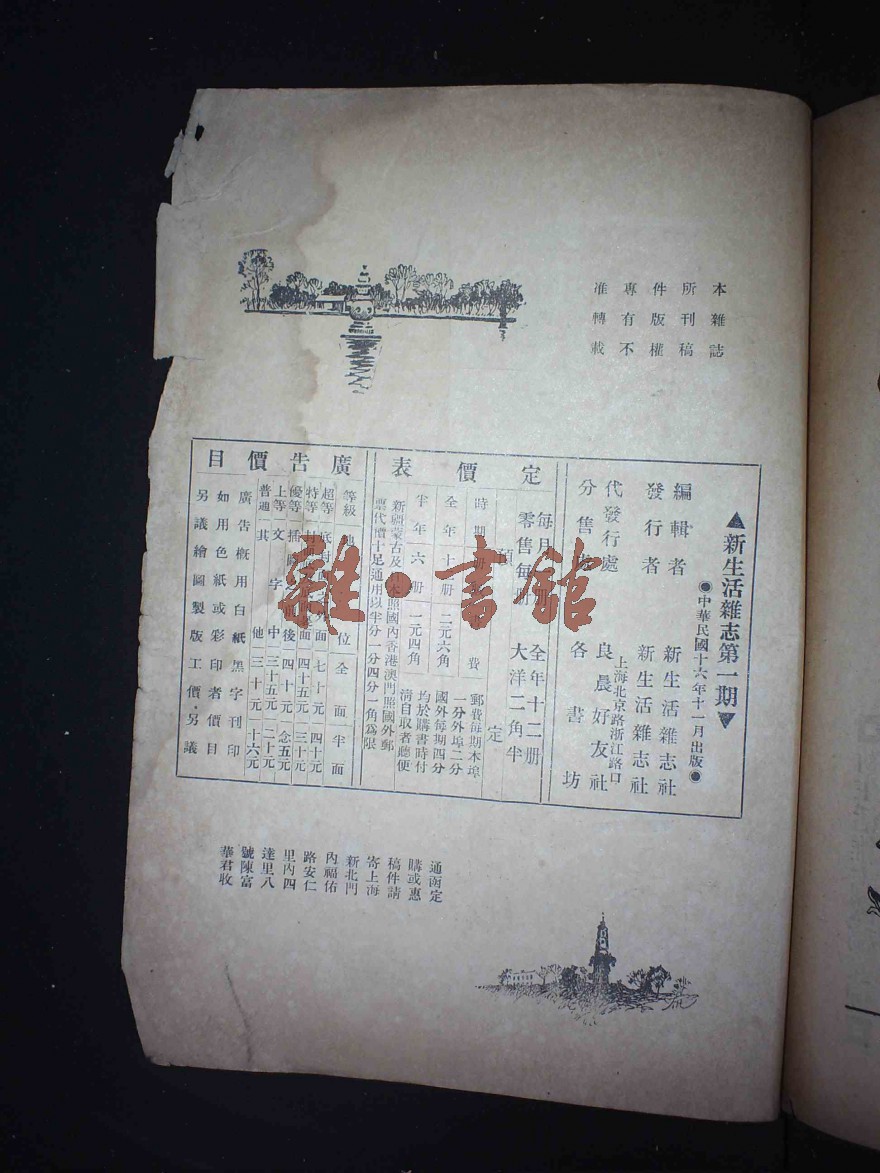 本雜誌
所刊稿
件版權
專有不
准轉載
▲新生活雜志第一期▼
●中華民國十六年十一月出版●
編輯者 新生活雜志社
發行者 新生活雜志社
上海北京路浙江路口
代發行處 良晨好友社
分售處 各書坊
定價表
每月 册 全年十二册
零售每册 大洋二角半
預定
時期 册 費
全年十 册 二元六角
半年六册 一元四角
郵費每期本埠
一分外埠二分
國外每期四分
均於購書時付
淸自取者聽便
新疆蒙古及日本照國內香港澳門照國外郵
票代價十足通用以半分一分四分一角爲限
廣告價目
等級 地 位 全面 半面
超等 底封面 外面 七十元 四十元
特等 封 面 四十五元 三十元
優等 插圖 前後 四十元 念五元
上等 文字中 三十五元 二十元
普通 其他 三十元 十六元
廣告概用白紙黑字刊印
如用色紙或彩印者價目
另議繪圖製版工價·另議
通函定
購或惠
稿件請
寄上海
新北門
內福佑
路安仁
里內四
達里八
號陳富
華君收
雜·書館